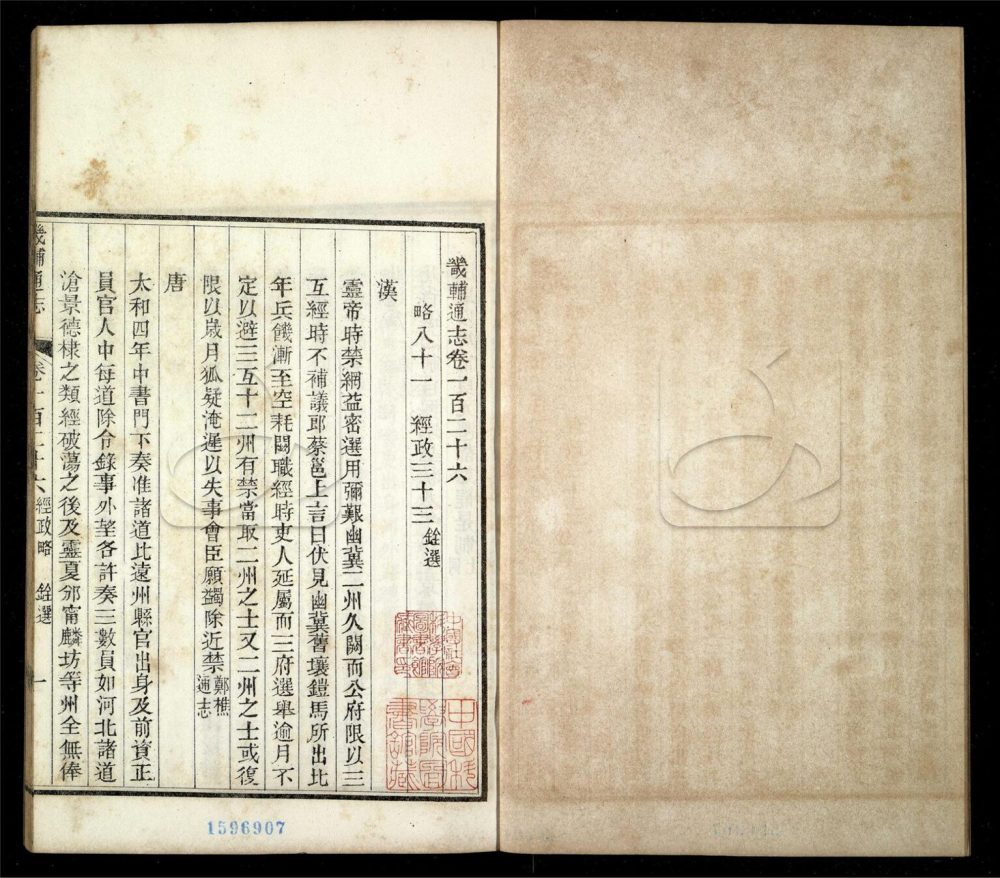 畿輔通志卷一百二十六
略八十一 經政三十三 銓選
漢
靈帝時禁網益密選用彌艱幽冀二州久闕而公府限以三
互經時不補議郎蔡邕上言曰伏見幽冀舊壤鎧馬所出比
年兵饑漸至空耗闕職經時吏人延屬而三府選舉逾月不
定以避三互十二州有禁當取二州之士又二州之士或復
限以歲月狐疑淹遲以失事會臣願蠲除近禁鄭樵通志
唐
太和四年中書門下奏准諸道比遠州縣官出身及前資正
員官人中每道除令錄事外望各許奏三數員如河北諸道
滄景德棣之類經破蕩之後及靈夏邠甯麟坊等州全無俸
畿輔通志 卷一百二十六 經政略 銓選 一
1596907